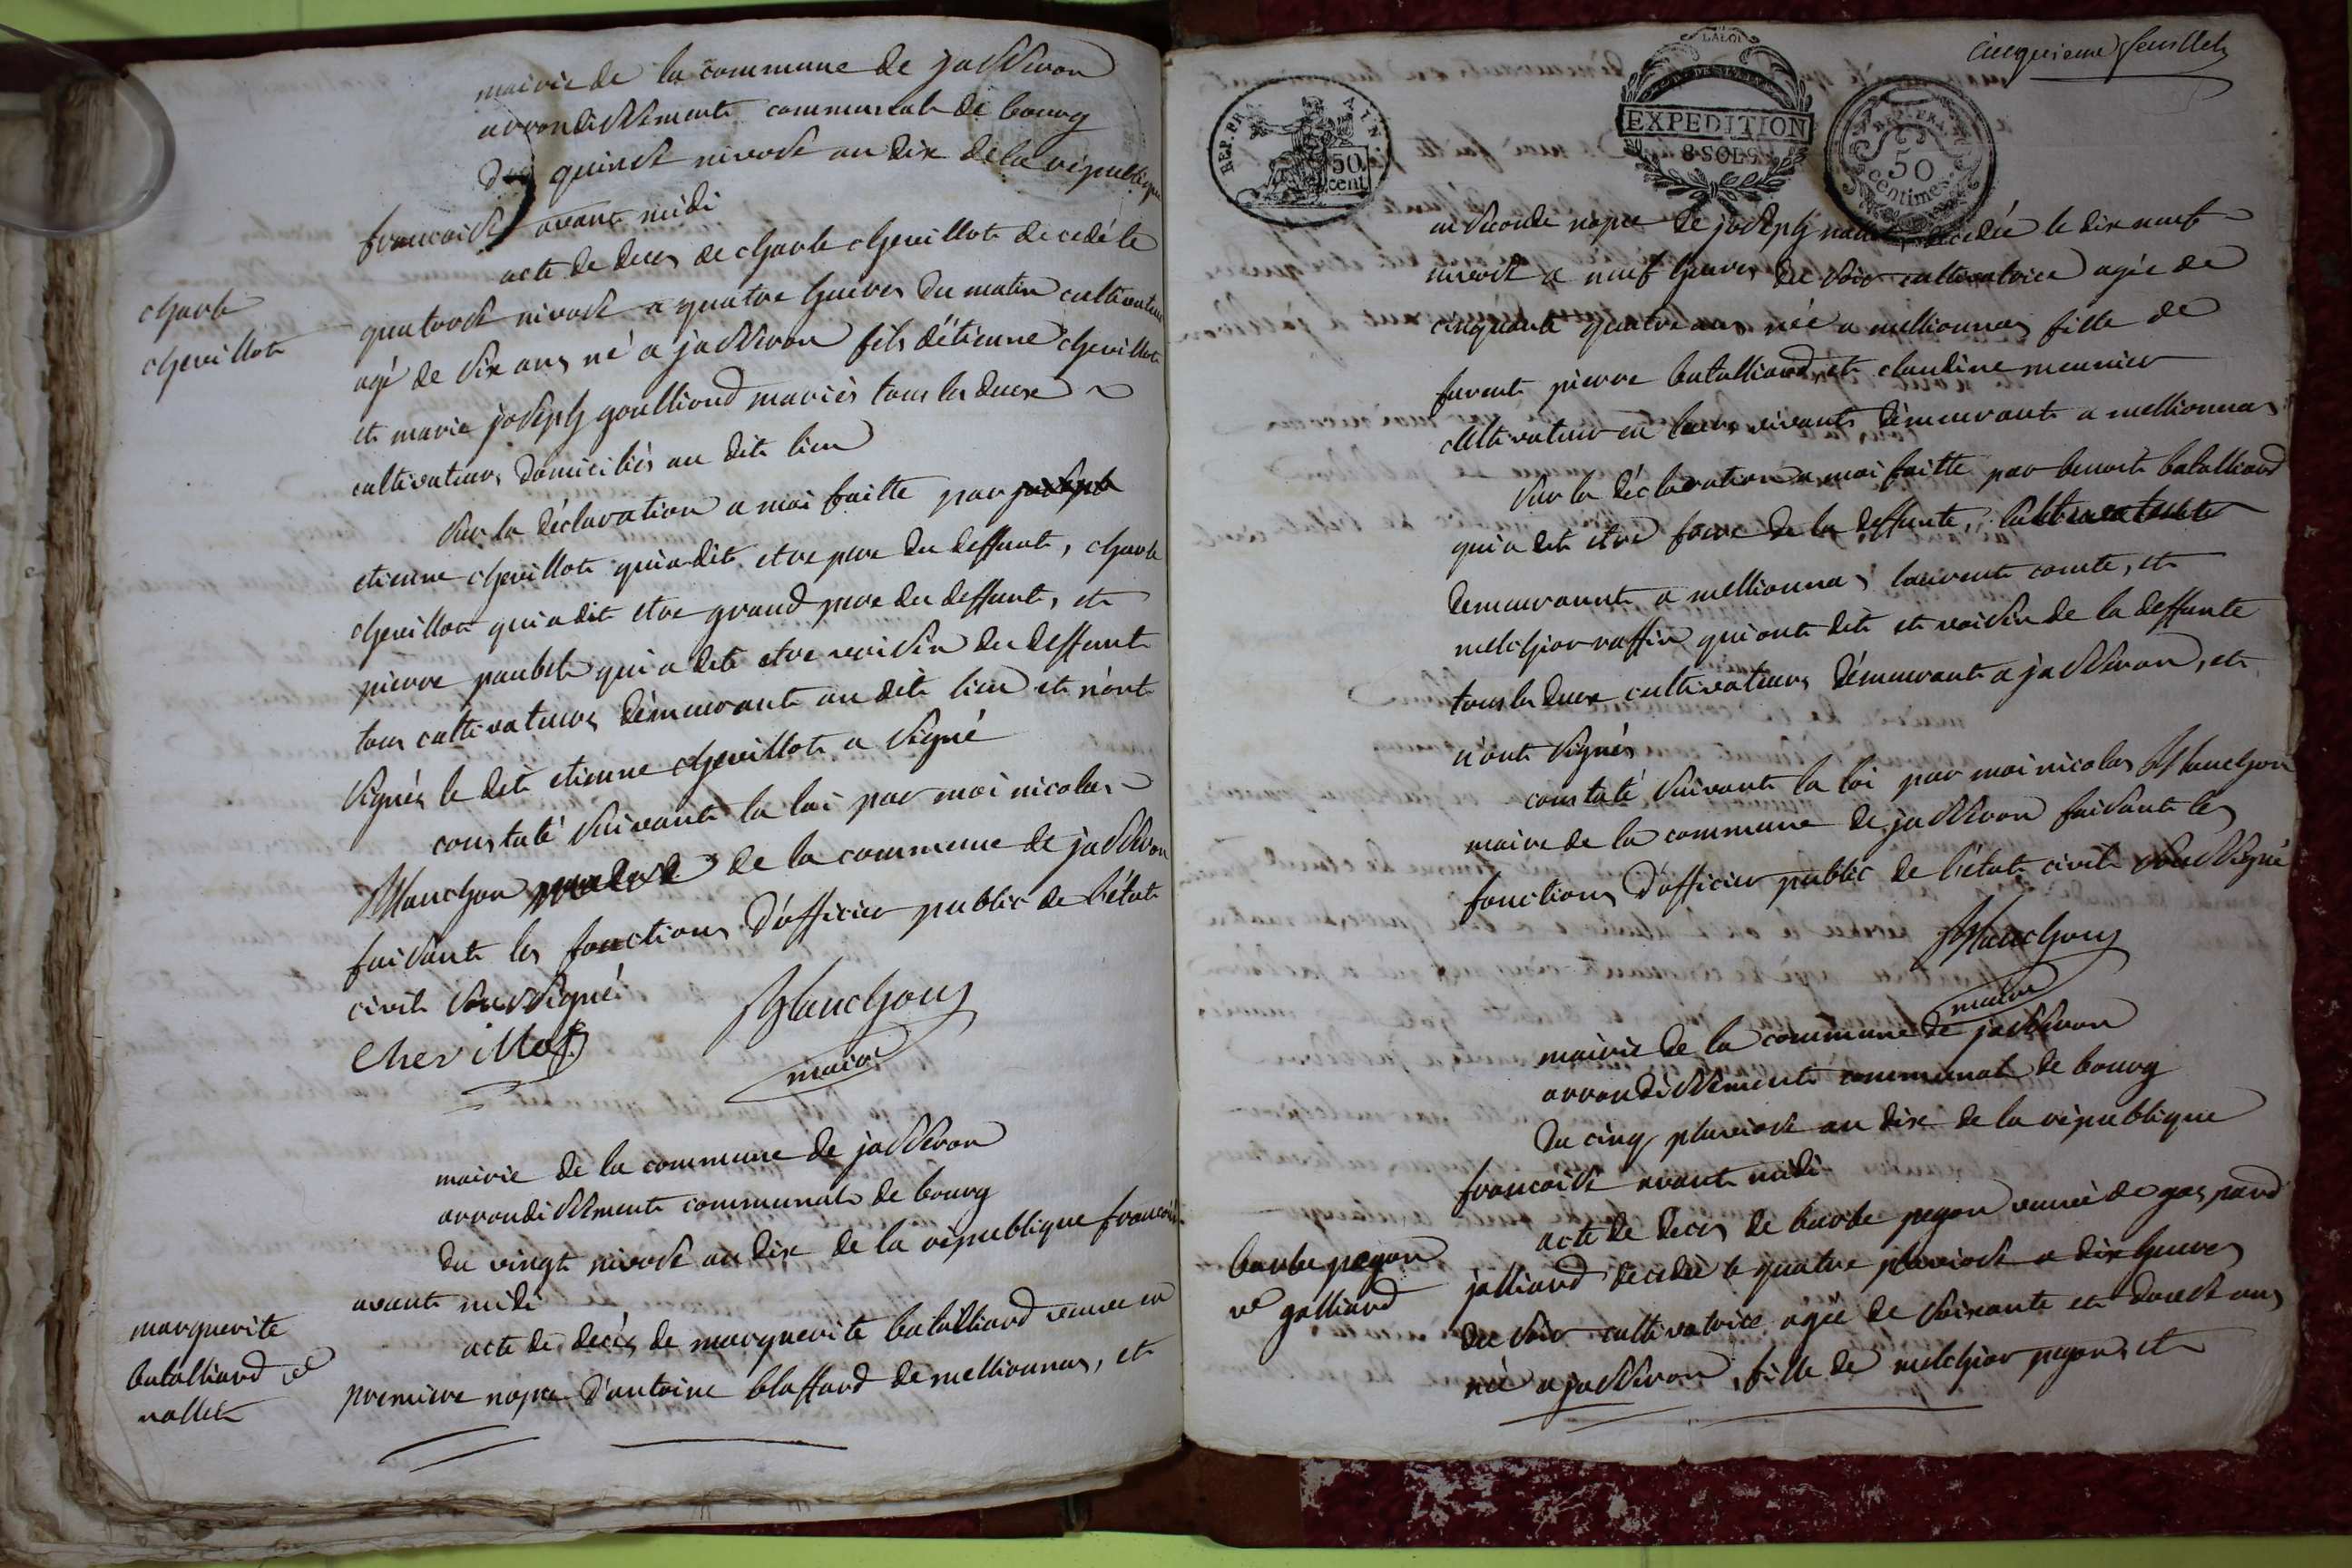 mairie de la commune de jasseron
arrondissement communal de bourg
du quinse nivose an dix de la republique
francaise avant midi
acte de deces de charle chevillot decedé le
charle
chevillot
quatorse nivose a quatre heures du matin cultivateur
agé de six ans né a jasseron fils d'étienne chevillot
et marie joseph goullioud mariés tous les deux
cultivateurs domiciliés au dit lieu
sur la déclaration a moi faitte par
etienne chevillot qui a dit etre pere du deffunt, charle
chevillot qui a dit etre grand pere du deffunt, et
pierre paubel qui a dit etre voisin du deffunt
tous cultivateurs démeurant au dit lieu et n'ont
signés le dit etienne chevillot a signé
constaté suivant la loi par moi nicolas
Blanchon de la commune de jasseron
faisant les fonctions d'officier public de l'état
civil soussigné
chevillot
Blanchon
maire
mairie de la commune de jasseron
arrondissement communal de bourg
du vingt nivose an dix de la république francaise
avant midi
marguerite
batalliard ve
nallet
acte de decès de marguerite batalliard veuve en
premiere nopce d'antoine blaffard de mellionnas, et
cinquieme feuillet
LA LOI
REP. FRA. AIN
50 cent
EXPEDITION
8 SOLS
REP. FRA.
50
centimes
en seconde nopce de joseph nallet decedée le dix neuf
nivose a neuf heures du soir cultivatrice agée de
cinquante quatre ans née a mellionnas fille de
furent pierre batalliard et claudine meunier
cultivateur en leurs vivants démeurant a mellionnas
sur la déclaration a moi faitte par benoit batalliard
qui a dit etre frere de la deffunte, cultivateur
demeurant a mellionnas laurent comte, et
melchior raffin qui ont dit et voisin de la deffunte
tous les deux cultivateurs démeurant a jasseron, et
n'ont signés
constaté suivant la loi par moi nicolas Blanchon
maire de la commune de jasseron faisant les
fonctions d'officier public de l'état civil soussigné
Blanchon
maire
mairie de la commune de jasseron
arrondissement communal de bourg
du cinq pluviose an dix de la république
francaise avant midi
barbe pegon
ve galliard
acte de deces de barbe pegon veuve de gaspard
jalliard decedée le quatre pluviose a dix heures
du soir cultivatrice agée de soixante et douse ans
née a jasseron, fille de melchior pegon, et